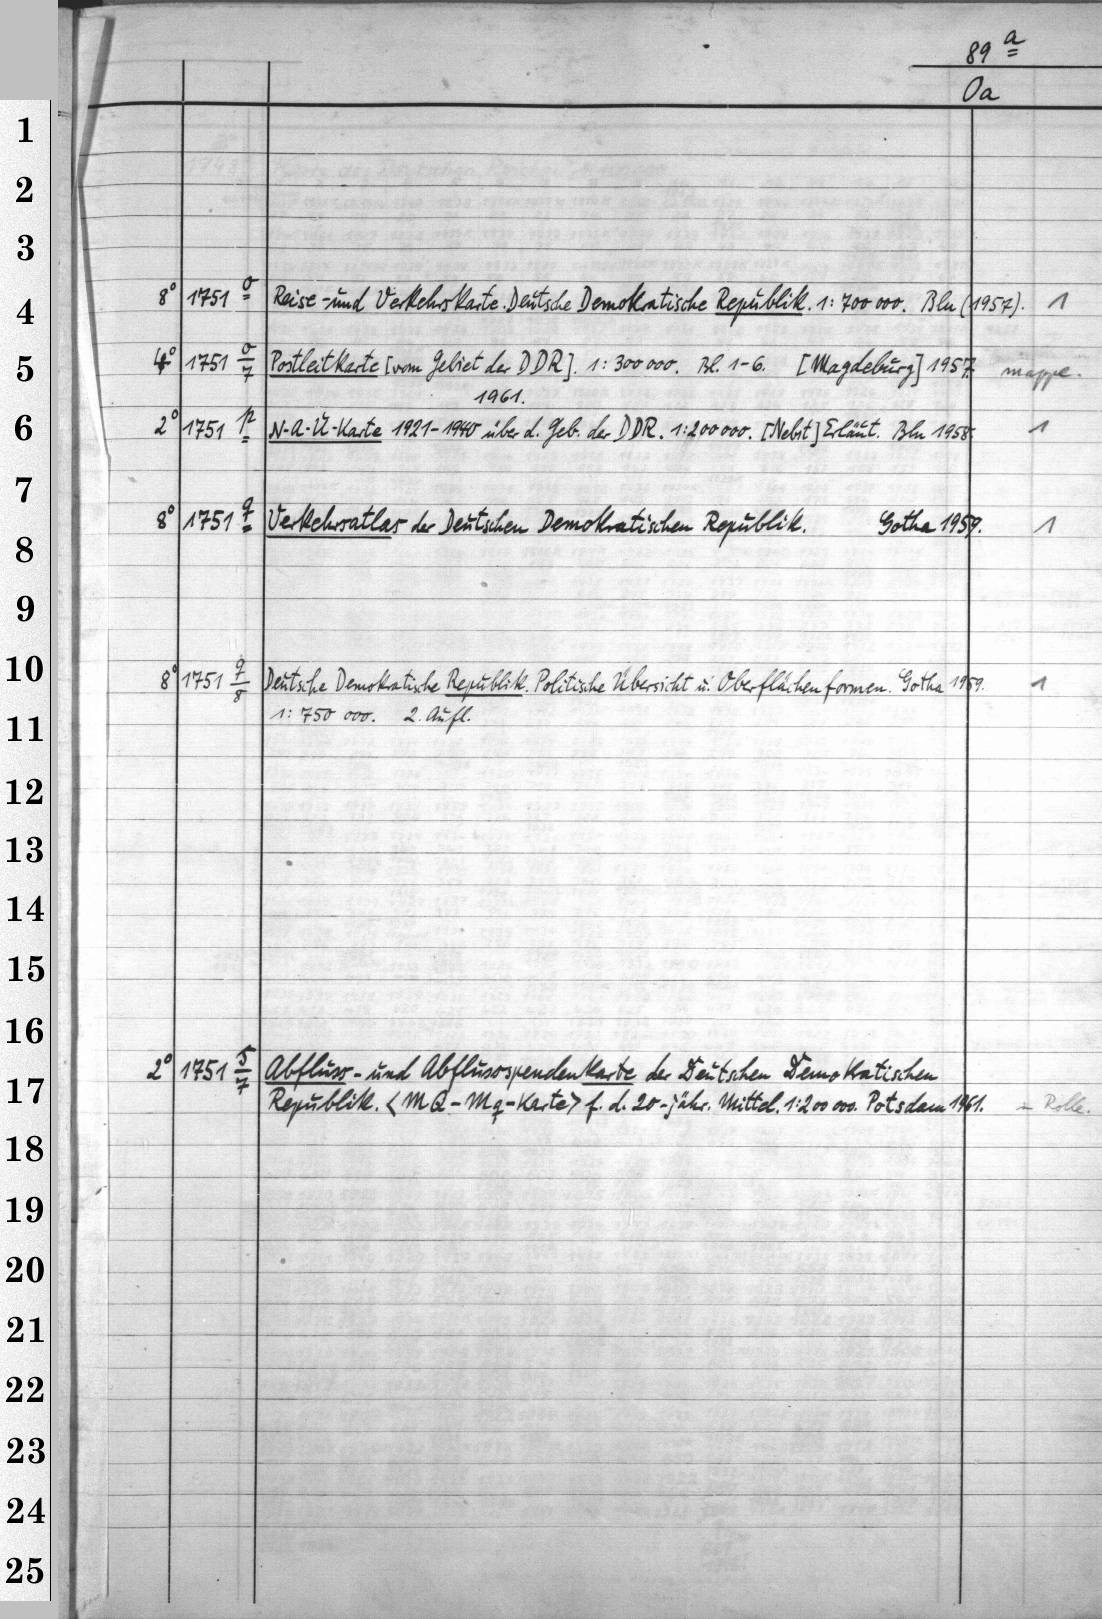 89 a
Oa
1
2
3
8° 1751 o Reise- und Verkehrskarte. Deutsche Demokratische Republik. 1:700 000. Bln (1957). 1
4
4° 1751 o/7 Postleitkarte [vom Gebiet der DDR]. 1:300 000. Bl. 1-6. [Magdeburg] 1957. mappe.
5
1961.
2° 1751 p N-A-Ü-Karte 1921-1940 über d. Geb. der DDR. 1:200 000. [Nebst] Erläut. Bln 1958. 1
6
7
8° 1751 q Verkehrsatlas der Deutschen Demokratischen Republik. Gotha 1959. 1
8
9
10
8° 1751 q/8 Deutsche Demokratische Republik. Politische Übersicht u. Oberflächenformen. Gotha 1959. 1
1:750 000. 2. Aufl.
11
12
13
14
15
16
2° 1751 s/7 Abfluss- und Abflussspendenkarte der Deutschen Demokratischen
17
Republik. <MQ-Mq-Karte> f. d. 20-jähr. Mittel. 1:200 000. Potsdam 1961. Rolle.
18
19
20
21
22
23
24
25